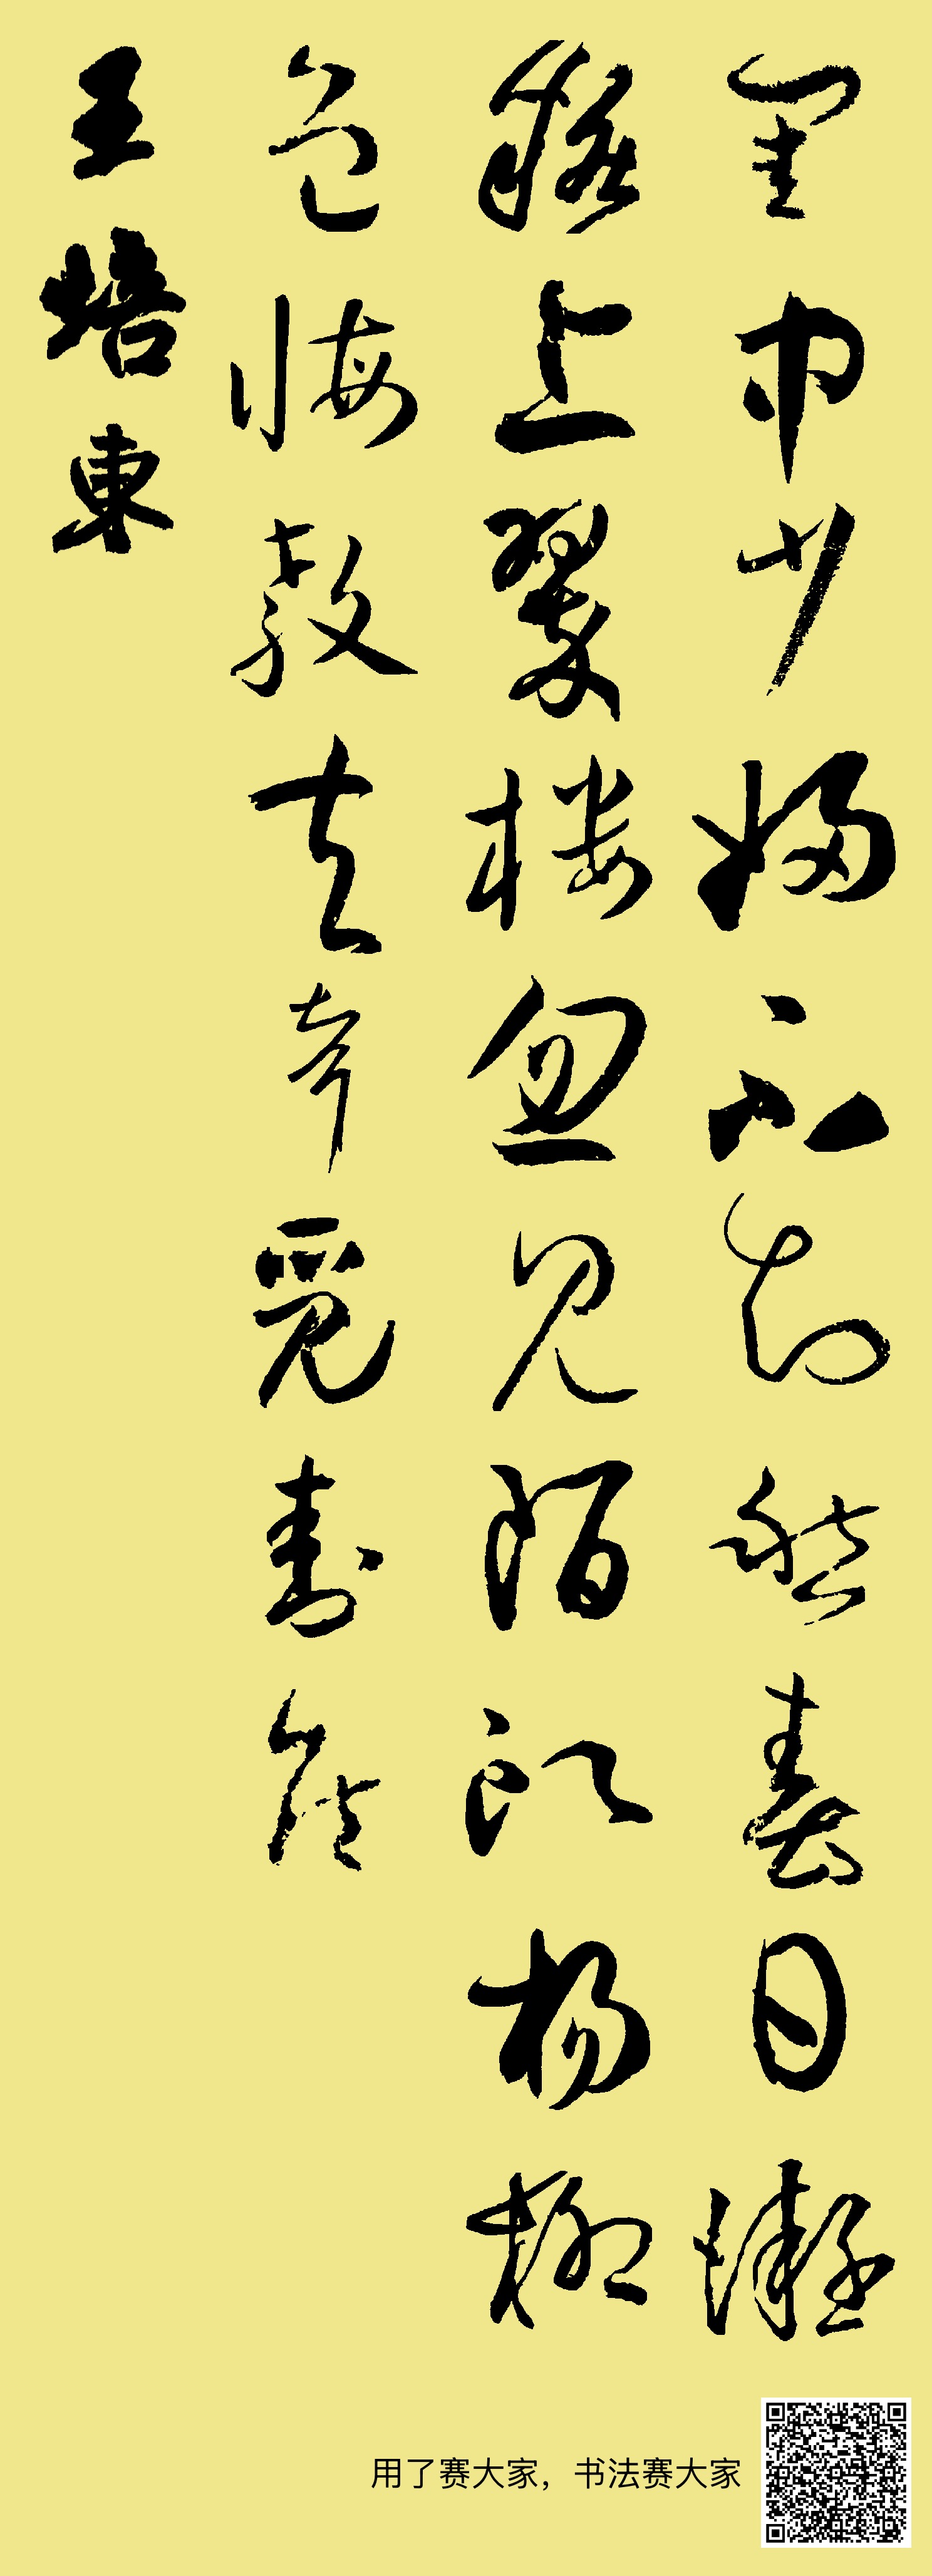 閨中少婦不知愁春日凝
妝上翠楼忽見陌頭楊柳
色悔教夫婿覓封侯
王培東
用了赛大家，书法赛大家